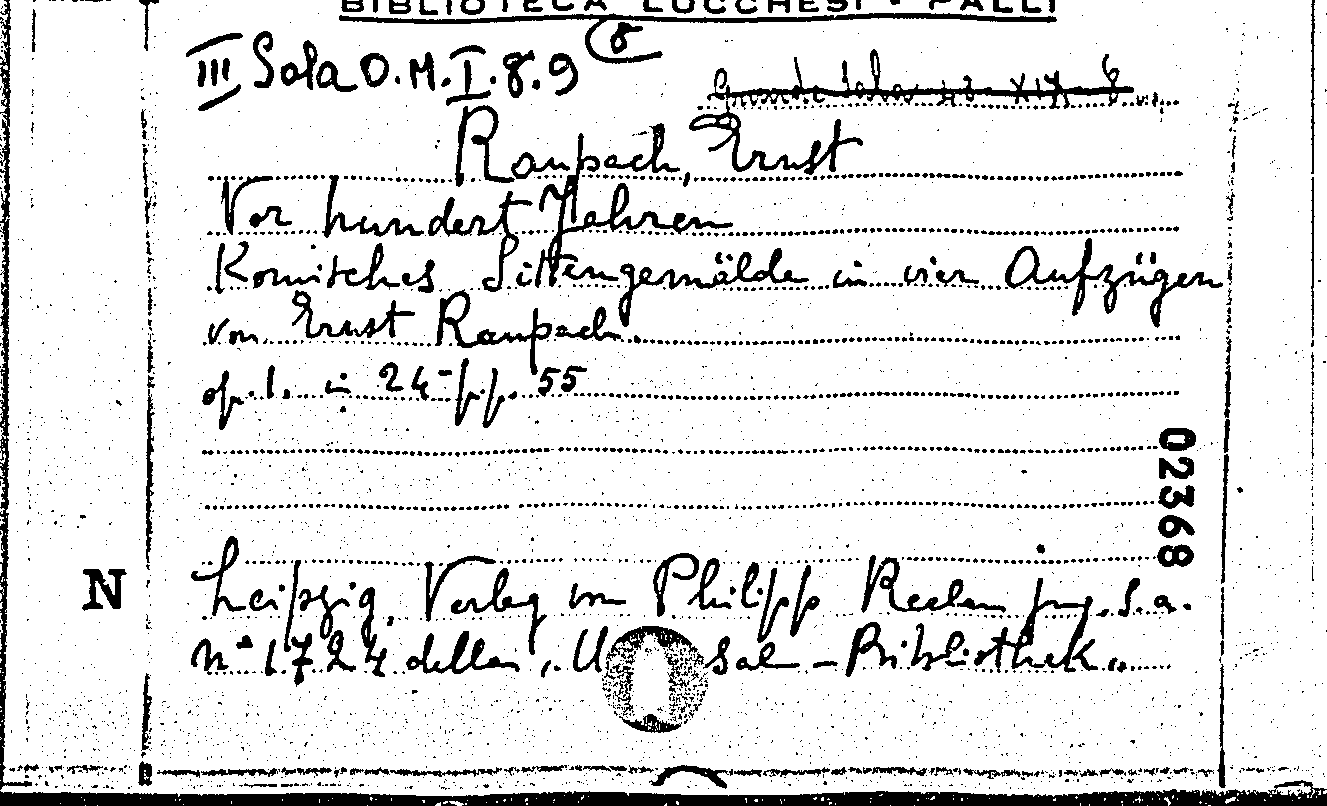 BIBLIOTECA LUCCHESI - PALLI
III Sala O.M.I.8.9 (8
Grande Sala 43 XIX 6
Raupach, Ernst
Vor hundert Jahren
Komisches Sittengemälde in vier Aufzügen
von Ernst Raupach.
op. 1. in 24- pp. 55
02368
N
Leipzig, Verlag von Philipp Reclam jun. s.a.
nº 1724 della „U sal - Bibliothek„